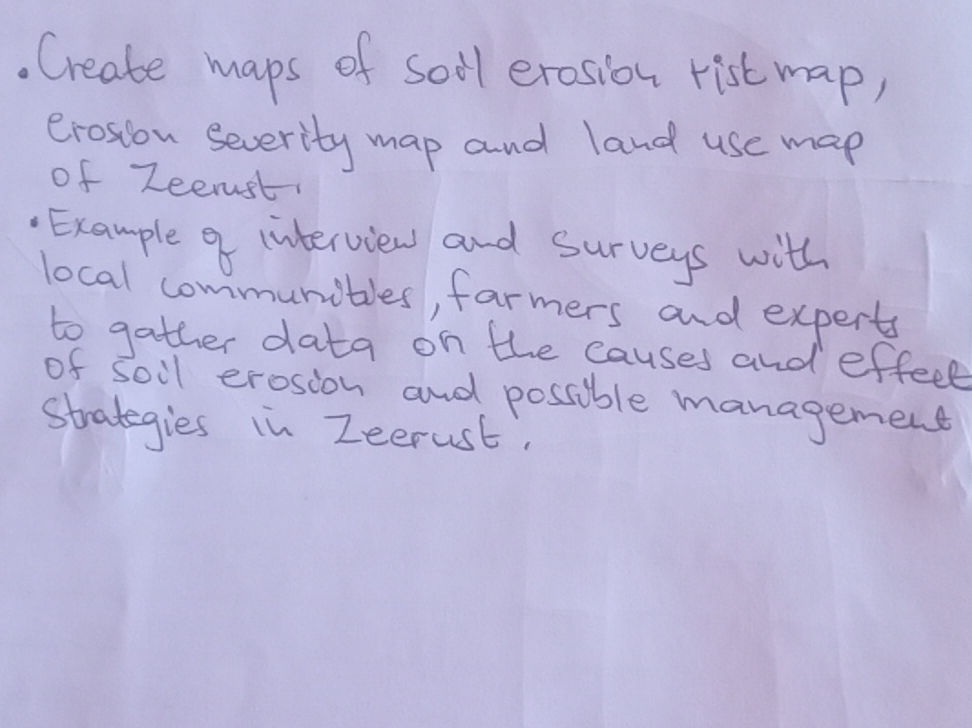 . Create maps of soil erosion risk map,
erosion severity map and land use map
of Zeerust.
• Example of interview and surveys with
local communities, farmers and experts
to gather data on the causes and effect
of soil erosion and possible management
strategies in Zeerust.